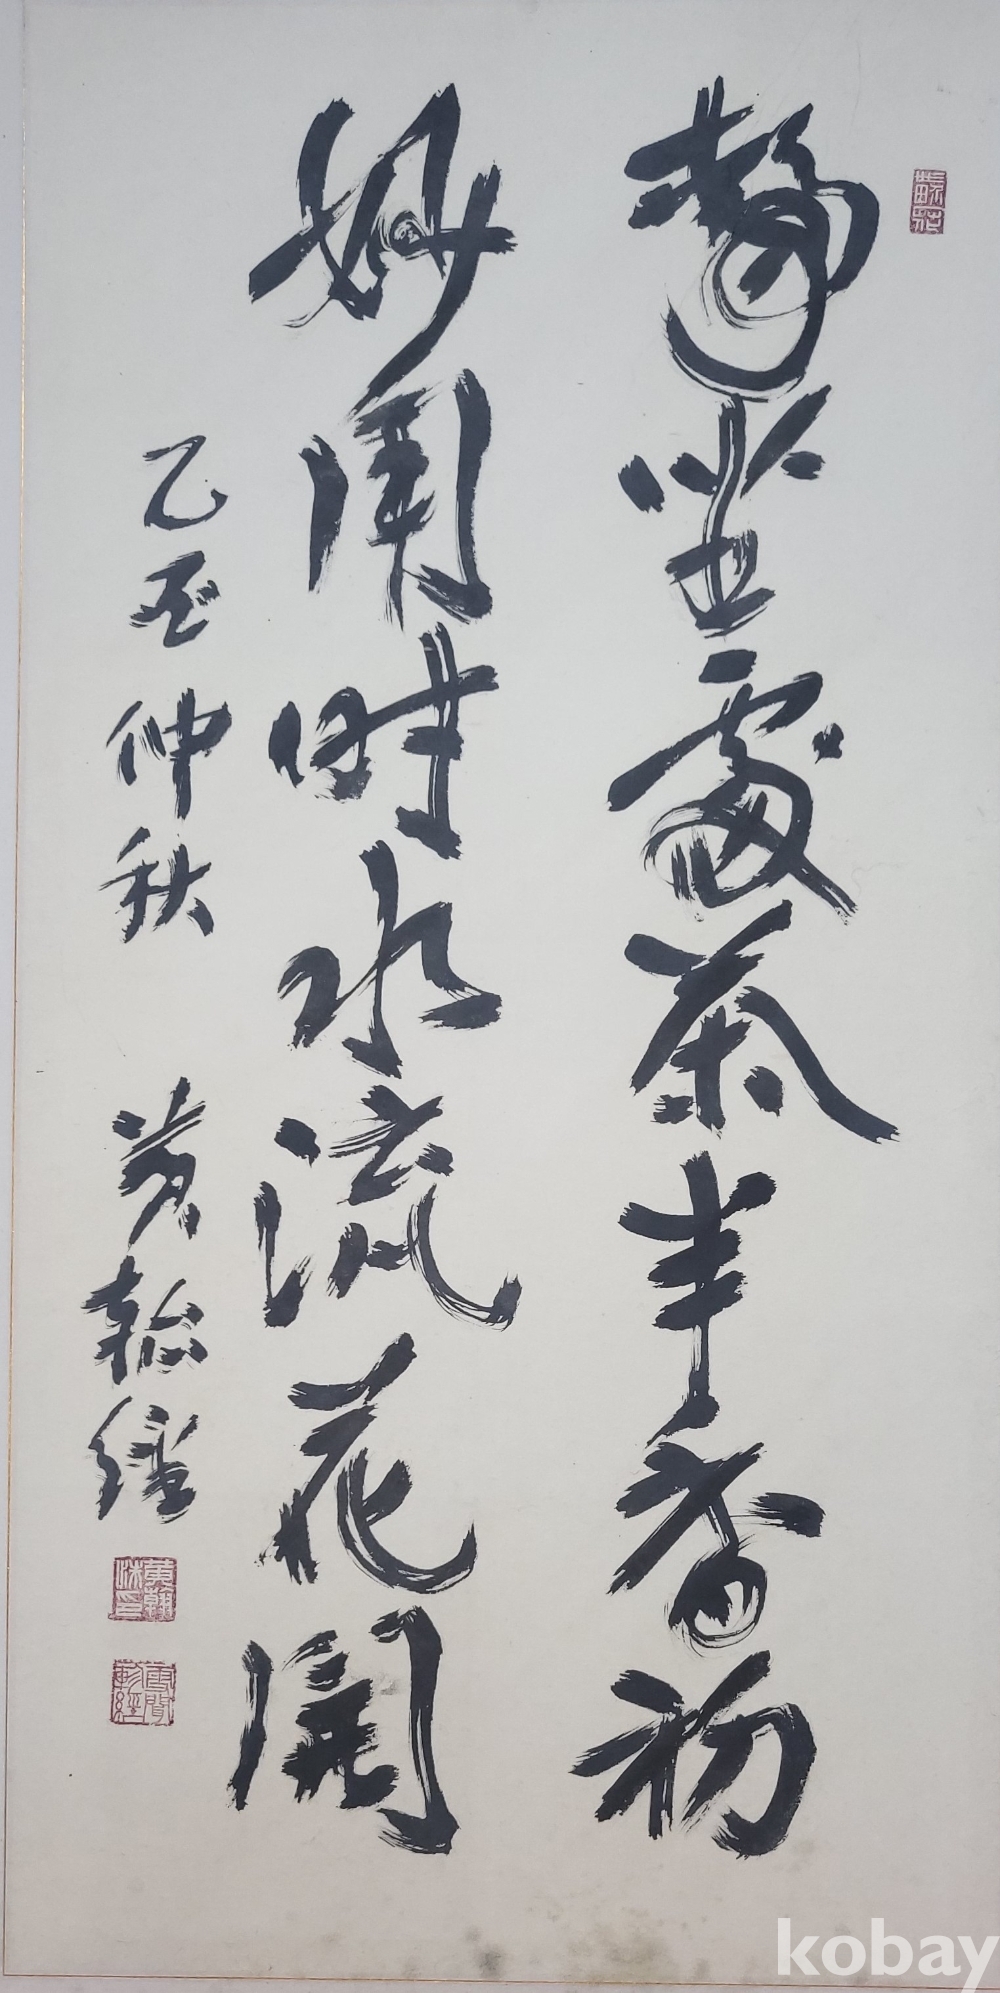 靜坐處茶半香初
妙用時水流花開
乙丑仲秋
黃
kobay